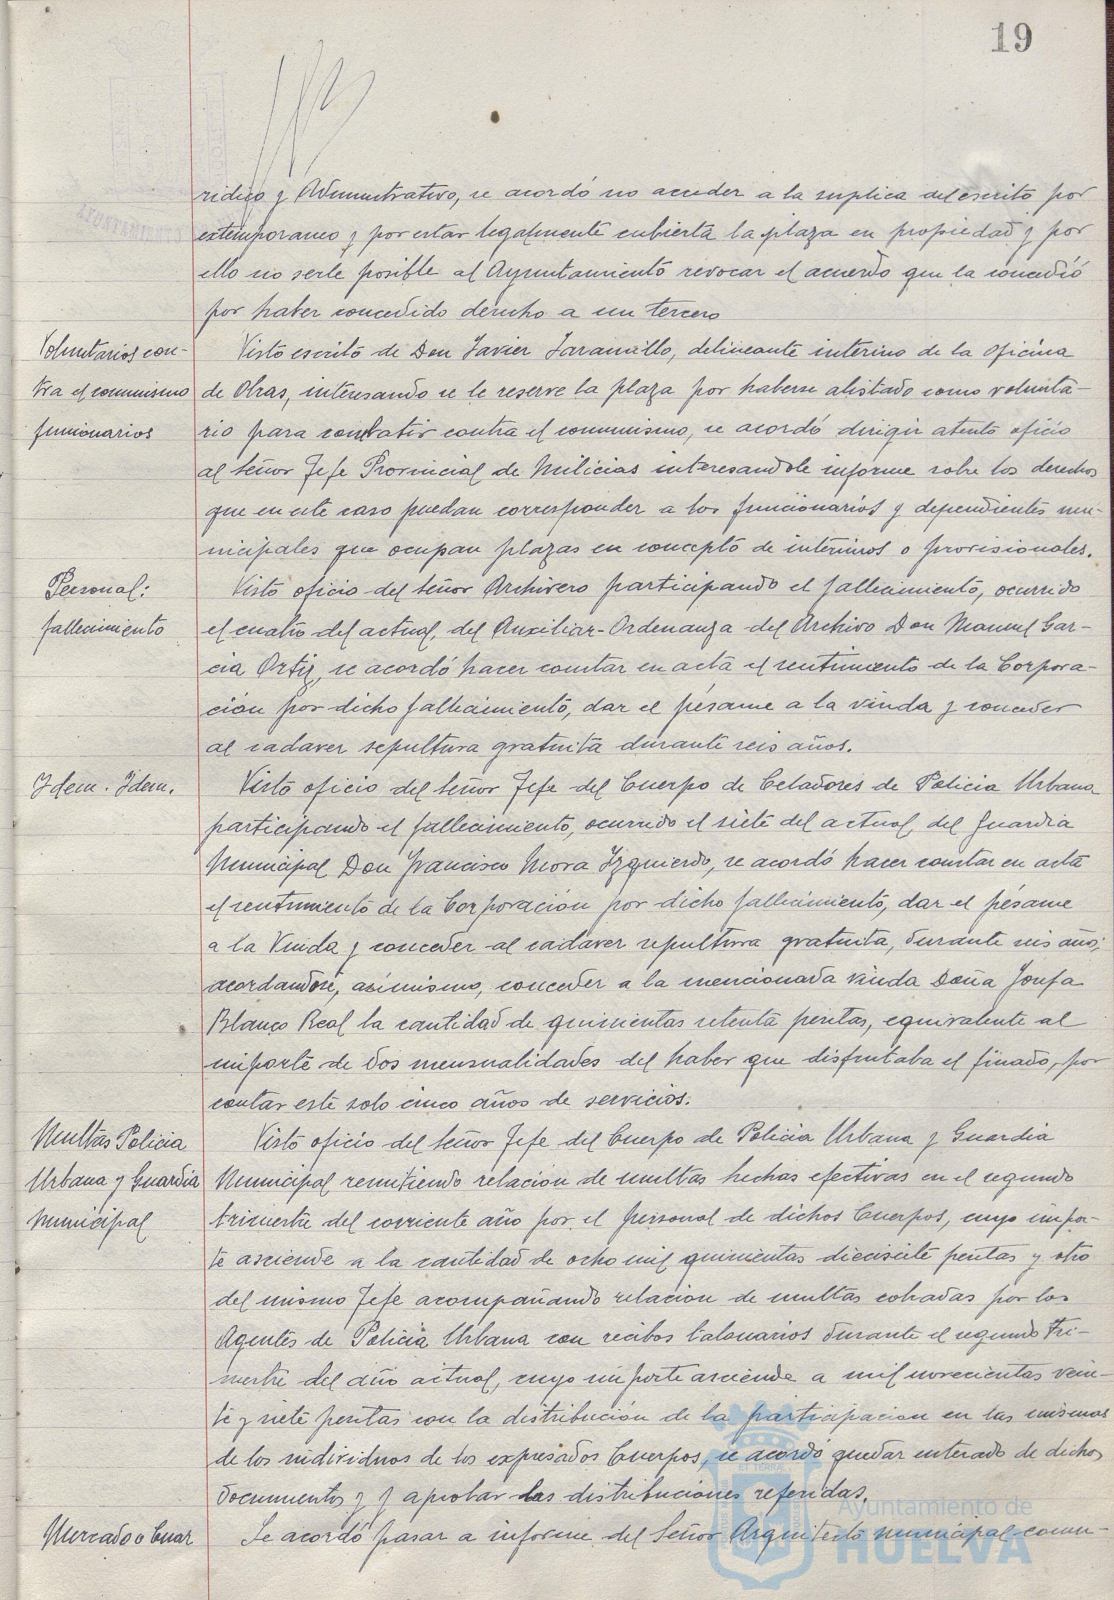 19
ridico y Administrativo, se acordó no acceder a la suplica del escrito por
extemporaneo y por estar legalmente cubierta la plaza en propiedad y por
ello no serle posible al Ayuntamiento revocar el acuerdo que la concedió
por haber concedido derecho a un tercero
Voluntarios con-
tra el comunismo
funcionarios
Visto escrito de Don Javier Jaramillo, delineante interino de la oficina
de Obras, interesando se le reserve la plaza por haberse alistado como volunta-
rio para combatir contra el comunismo, se acordó dirigir atento oficio
al Señor Jefe Provincial de Milicias interesandole informe sobre los derechos
que en este caso puedan corresponder a los funcionarios y dependientes mu-
nicipales que ocupan plazas en concepto de interinos o provisionales.
Personal:
fallecimiento
Visto oficio del Señor Archivero participando el fallecimiento, ocurrido
el cuatro del actual, del Auxiliar-Ordenanza del Archivo Don Manuel Gar-
cia Ortiz, se acordó hacer constar en acta el sentimiento de la Corpora-
ción por dicho fallecimiento, dar el pésame a la viuda y conceder
al cadaver sepultura gratuita durante seis años.
Idem. Idem.
Visto oficio del Señor Jefe del Cuerpo de Celadores de Policia Urbana
participando el fallecimiento, ocurrido el siete del actual, del Guardia
Municipal Don Francisco Mora Izquierdo, se acordó hacer constar en acta
el sentimiento de la Corporación por dicho fallecimiento, dar el pésame
a la Viuda y conceder al cadaver sepultura gratuita, durante seis años;
acordandose, asimismo, conceder a la mencionada viuda Doña Josefa
Blanco Real la cantidad de quinientas setenta pesetas, equivalente al
importe de dos mensualidades del haber que disfrutaba el finado, por
contar este solo cinco años de servicios.
Multas Policia
Urbana y Guardia
Municipal
Visto oficio del Señor Jefe del Cuerpo de Policia Urbana y Guardia
Municipal remitiendo relacion de multas hechas efectivas en el segundo
trimestre del corriente año por el personal de dichos Cuerpos, cuyo impor-
te asciende a la cantidad de ocho mil quinientas diecisiete pesetas y otro
del mismo Jefe acompañando relacion de multas cobradas por los
Agentes de Policia Urbana con recibos talonarios durante el segundo tri-
mestre del año actual, cuyo importe asciende a mil novecientas vein-
te y siete pesetas con la distribución de la participacion en las mismas
de los individuos de los expresados Cuerpos, se acordó quedar enterado de dichos
documentos y aprobar las distribuciones referidas.
Mercado o Cuar
Se acordó pasar a informe del Señor Arquitecto municipal comu-
Ayuntamiento de
HUELVA